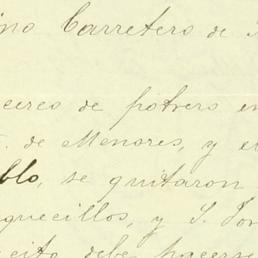 ino Carretero de
cerco de potrero en
. de Menores, y e
blo, se quitaron
quecillos, y S. Tor
cito debe hacerse